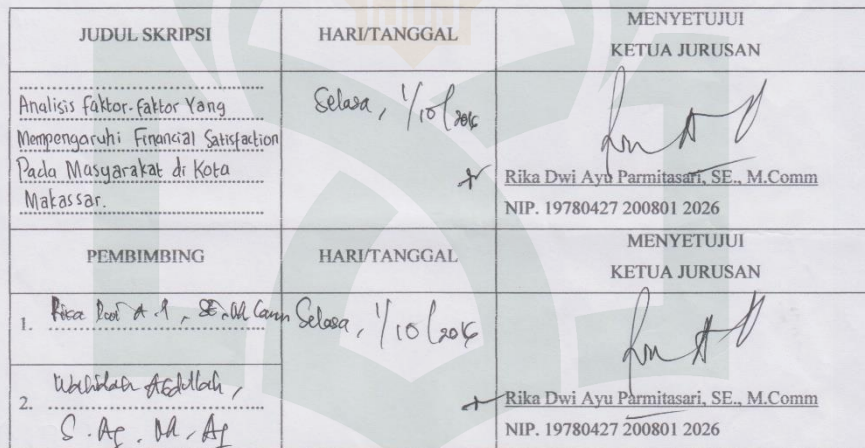 JUDUL SKRIPSI
HARI/TANGGAL
MENYETUJUI
KETUA JURUSAN
Analisis faktor-faktor Yang
Mempengaruhi Financial Satisfaction
Pada Masyarakat di Kota
Makassar.
Selasa, 1/10/2016
Rika Dwi Ayu Parmitasari, SE., M.Comm
NIP. 19780427 200801 2026
PEMBIMBING
HARI/TANGGAL
MENYETUJUI
KETUA JURUSAN
1. Rika Dwi A.P, SE, M.Comm
Selasa, 1/10/2016
2. Wahidah Abdullah,
S.Ag, M.Ag
Rika Dwi Ayu Parmitasari, SE., M.Comm
NIP. 19780427 200801 2026